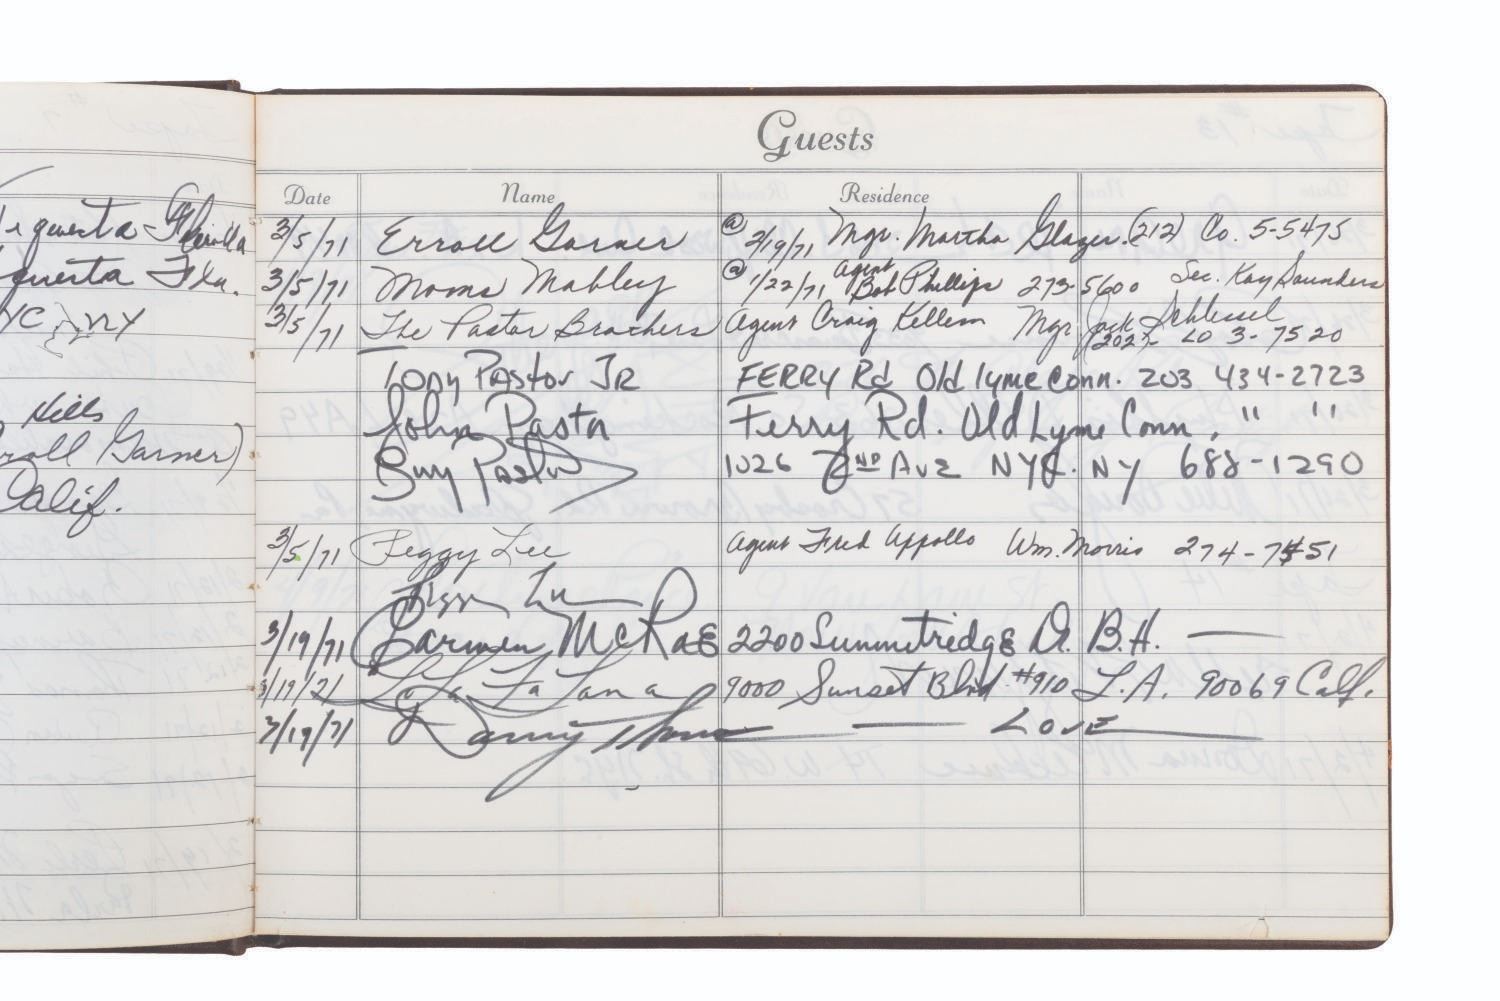 Tequesta Florida
Tequesta Fla.
NYC NY
Hills
Erroll Garner)
Calif.
Guests
Date Name Residence
3/5/71 Erroll Garner @ 2/19/71 Mgr. Martha Glazer. (212) Co. 5-5475
3/5/71 Moms Mabley @ 1/22/71 Agent Bob Phillips 273-5600 Sec. Kay Saunders
3/5/71 The Pastor Brothers Agent Craig Kellem Mgr. Jack Schlessel (202) LO 3-7520
Tony Pastor JR FERRY Rd Old lyme Conn. 203 434-2723
John Pastor Ferry Rd. Old Lyme Conn. " "
Guy Pastor 1026 2ND AVE NYC. NY 688-1290
3/5/71 Peggy Lee Agent Fred Appollo Wm. Morris 274-7451
Peggy Lee
3/19/71 Carmen McRae 2200 Summitridge Dr. B.H. —
3/19/71 Lola Falana 9000 Sunset Blvd. #910 L.A. 90069 Calf.
3/19/71 Danny Thomas — LOVE —